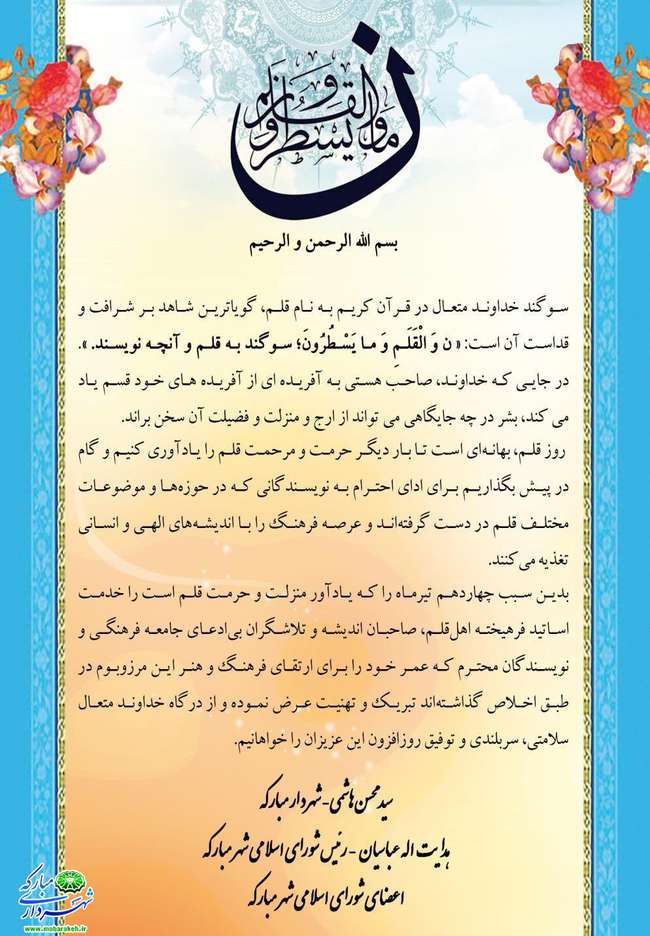 ن والقلم و ما یسطرون
بسم الله الرحمن و الرحیم
سوگند خداوند متعال در قرآن کریم به نام قلم، گویاترین شاهد بر شرافت و
قداست آن است: « ن وَ الْقَلَمِ وَ ما یَسْطُرُونَ؛ سوگند به قلم و آنچه نویسند. ».
در جایی که خداوند، صاحب هستی به آفریده ای از آفریده های خود قسم یاد
می کند، بشر در چه جایگاهی می تواند از ارج و منزلت و فضیلت آن سخن براند.
روز قلم، بهانه‌ای است تا بار دیگر حرمت و مرحمت قلم را یادآوری کنیم و گام
در پیش بگذاریم برای ادای احترام به نویسندگانی که در حوزه‌ها و موضوعات
مختلف قلم در دست گرفته‌اند و عرصه فرهنگ را با اندیشه‌های الهی و انسانی
تغذیه می‌کنند.
بدین سبب چهاردهم تیرماه را که یادآور منزلت و حرمت قلم است را خدمت
اساتید فرهیخته اهل‌قلم، صاحبان اندیشه و تلاشگران بی‌ادعای جامعه فرهنگی و
نویسندگان محترم که عمر خود را برای ارتقای فرهنگ و هنر این مرزوبوم در
طبق اخلاص گذاشته‌اند تبریک و تهنیت عرض نموده و از درگاه خداوند متعال
سلامتی، سربلندی و توفیق روزافزون این عزیزان را خواهانیم.
سید محسن هاشمی - شهردار مبارکه
هدایت اله عباسیان - رئیس شورای اسلامی شهر مبارکه
اعضای شورای اسلامی شهر مبارکه
شهرداری مبارکه
www.mobarakeh.ir